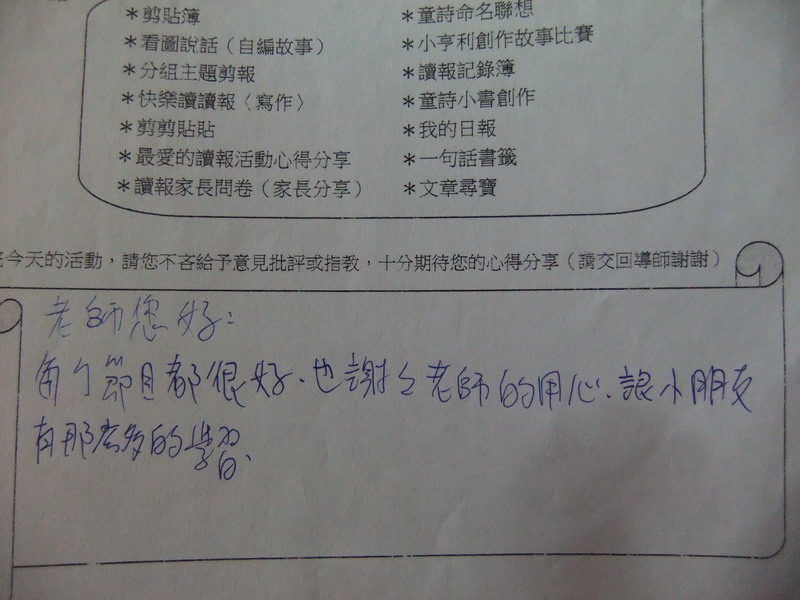 ＊剪貼簿 ＊童詩命名聯想
＊看圖說話（自編故事） ＊小亨利創作故事比賽
＊分組主題剪報 ＊讀報記錄簿
＊快樂讀讀報〈寫作〉 ＊童詩小書創作
＊剪剪貼貼 ＊我的日報
＊最愛的讀報活動心得分享 ＊一句話書籤
＊讀報家長問卷（家長分享） ＊文章尋寶
今天的活動，請您不吝給予意見批評或指教，十分期待您的心得分享（請交回導師謝謝）
老師您好：
每個節目都很好、也謝々老師的用心、讓小朋友
有那麼多的學習